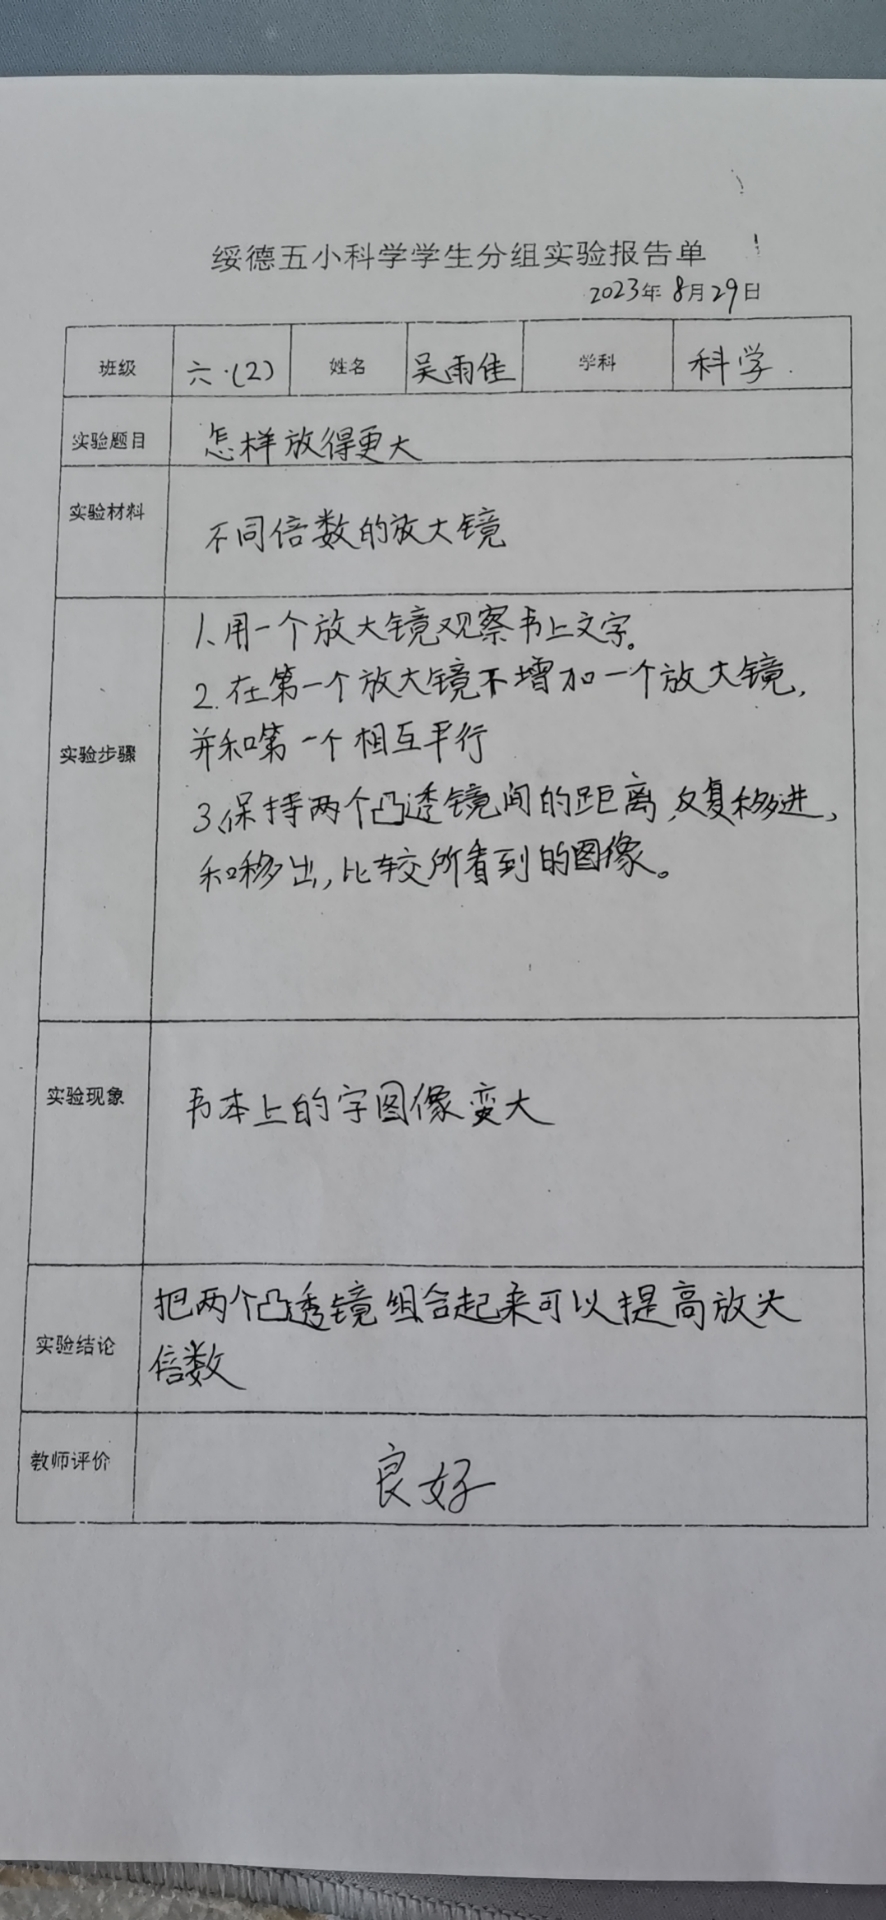 绥德五小科学学生分组实验报告单
2023年8月29日
班级 六.(2) 姓名 吴雨佳 学科 科学.
实验题目 怎样放得更大
实验材料 不同倍数的放大镜
实验步骤
1、用一个放大镜观察书上文字。
2.在第一个放大镜不增加一个放大镜,
并和第一个相互平行
3、保持两个凸透镜间的距离,反复移进,
和移出,比较所看到的图像。
实验现象 书本上的字图像变大
实验结论
把两个凸透镜组合起来可以提高放大
倍数
教师评价 良好